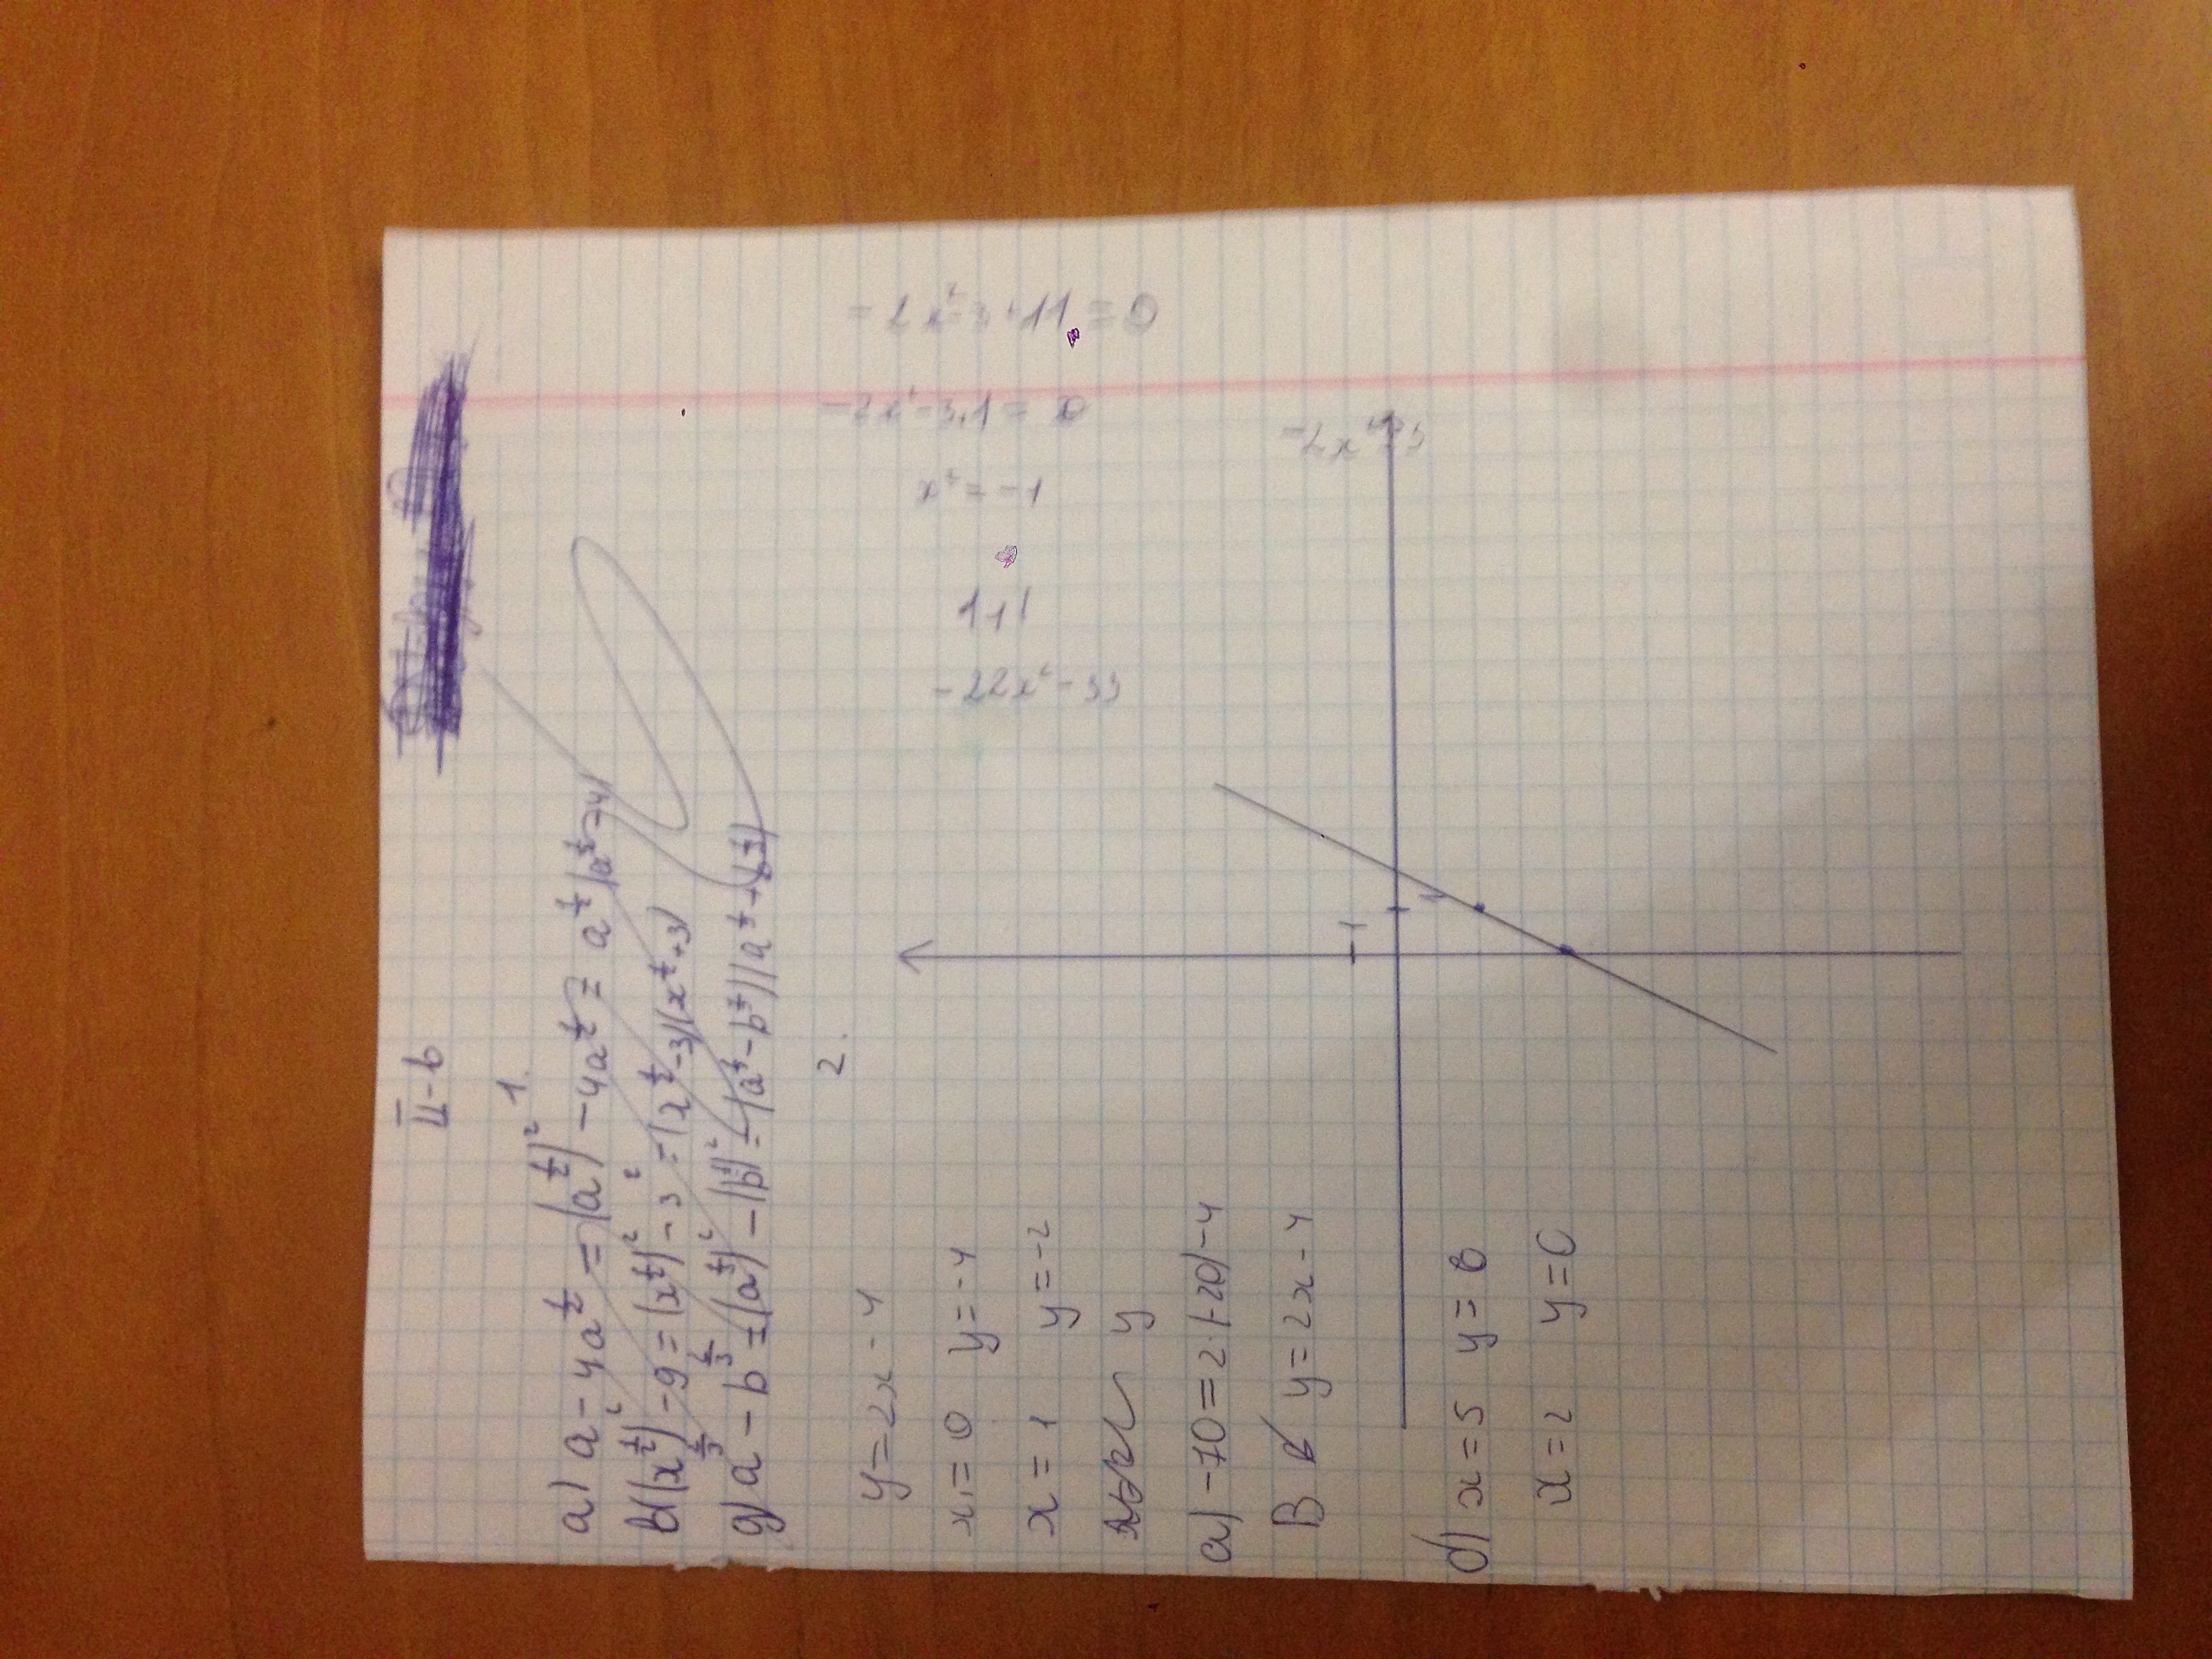 II-в
1.
а) a - 4a^{1/2} = (a^{1/2})^2 - 4a^{1/2} = a^{1/2}(a^{1/2} - 4)
в) (x^{1/2})^2 - 9 = (x^{1/2})^2 - 3^2 = (x^{1/2} - 3)(x^{1/2} + 3)
g) a^{2/3} - b^{2/3} = (a^{1/3})^2 - (b^{1/3})^2 = (a^{1/3} - b^{1/3})(a^{1/3} + b^{1/3})
2.
y = 2x - 4
x = 0 y = -4
x = 1 y = -2
y
а) -70 = 2·(-20) - 4
В y = 2x - 4
б) x = 5 y = 6
x = 2 y = 0
1
1
-2x² - 3 · 11 = 0
-2x² - 3,1 = 0
x² = -1
1+1
-22x² - 33